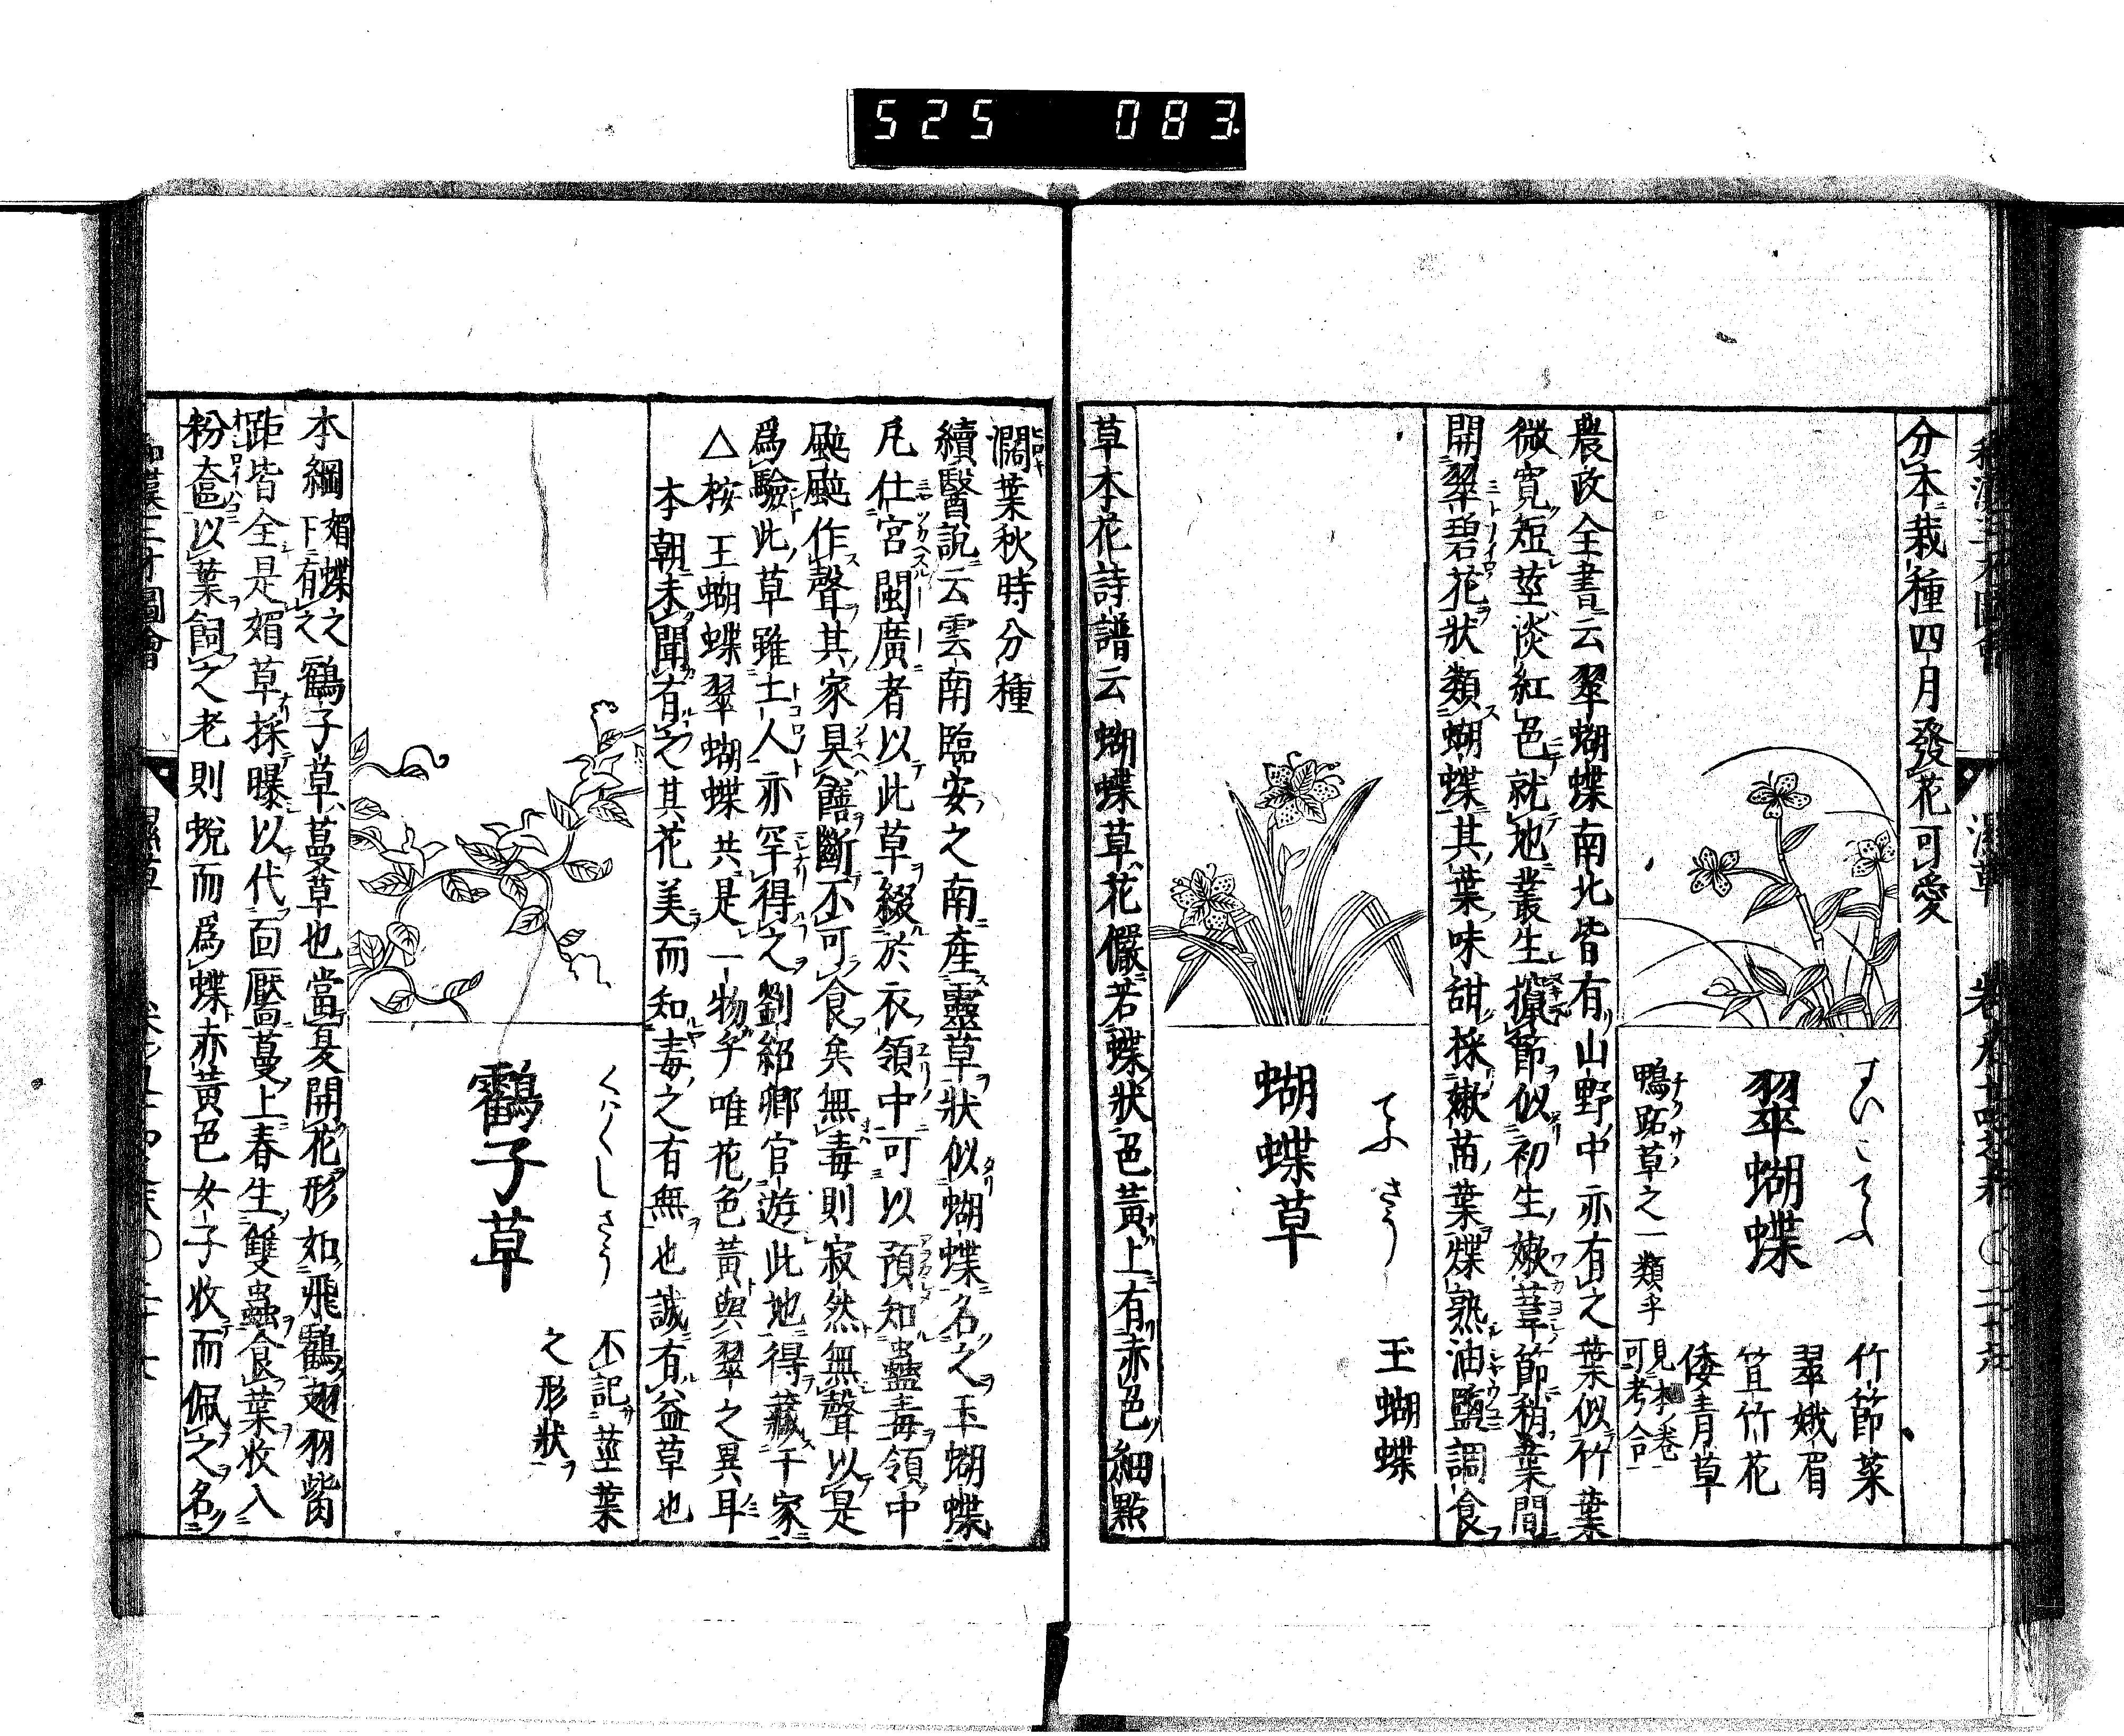 525 083
分本栽種四月發花可愛
すいこてふ
翠蝴蝶
竹節菜
翠娥眉
笪竹花
倭青草
鴨跖草之一類乎
見本卷
可考合
農政全書云翠蝴蝶南北皆有山野中亦有之葉似竹葉
微寬短莖淡紅色就地叢生攛節似初生嫩葦節稍葉間
開翠碧花狀類蝴蝶其葉味甜採嫩苗葉煠熟油鹽調食
てふさう
蝴蝶草
玉蝴蝶
草本花詩譜云蝴蝶草花儼若蝶狀色黃上有赤色細點
濶葉秋時分種
續醫說云雲南臨安之南產靈草狀似蝴蝶名之玉蝴蝶
凡仕宮閩廣者以此草綴於衣領中可以預知蠱毒領中
颭颭作聲其家具饍斷不可食矣無毒則寂然無聲以是
爲驗此草雖土人亦罕得之劉紹卿官遊此地得藏于家
△桉王蝴蝶翠蝴蝶共是一物乎唯花色黃與翠之異耳
本朝未聞有之其花美而知毒之有無也誠有益草也
くはくしさう
鸖子草
不記莖葉
之形狀
本綱媚蝶之下有之鸖子草蔓草也當夏開花形如飛鸖翅羽觜
距皆全是媚草採曝以代面靨蔓上春生雙蟲食葉收入
粉奩以葉飼之老則蛻而爲蝶赤黃色女子收而佩之名
和漢三才圖會 濕草